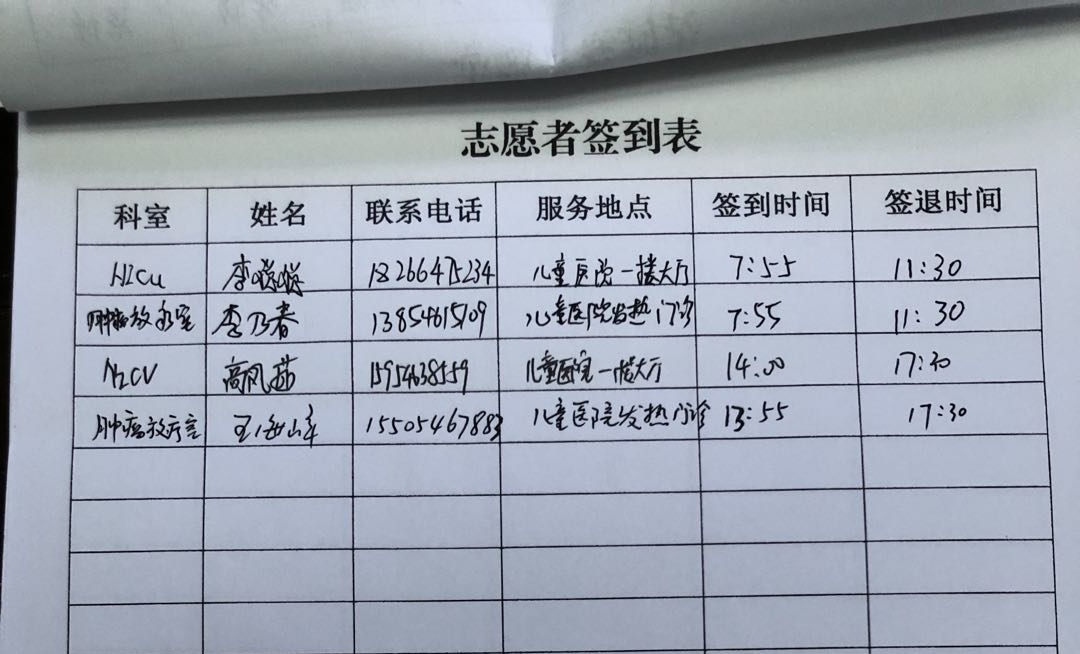 志愿者签到表
科室 姓名 联系电话 服务地点 签到时间 签退时间
NICU 李 18266475234 儿童医院一楼大厅 7:55 11:30
肿瘤放疗室 李乃春 13854615109 儿童医院发热门诊 7:55 11:30
NICU 高凤茹 15954638559 儿童医院一楼大厅 14:00 17:30
肿瘤放疗室 王海峰 15505467883 儿童医院发热门诊 13:55 17:30